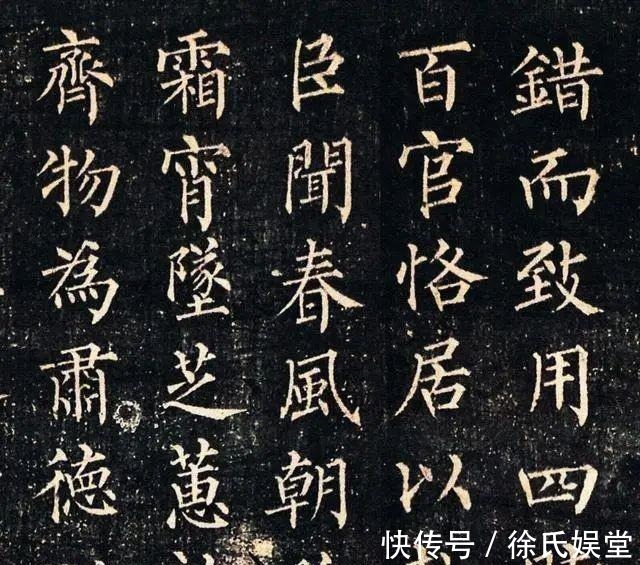 錯而致用四
百官恪居以
臣聞春風朝
霜宵墜芝蕙
齊物為肅德
快传号／徐氏娱堂